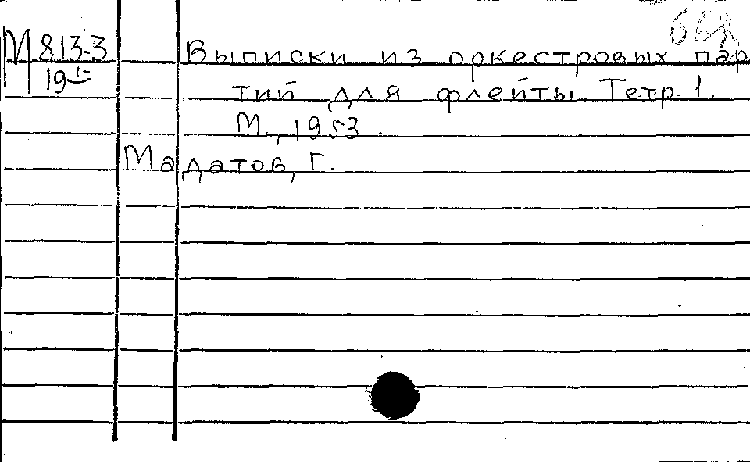 М 813-3
19
Выписки из оркестровых пар
тий для флейты. Тетр. 1.
М., 1953.
Мадатов, Г.